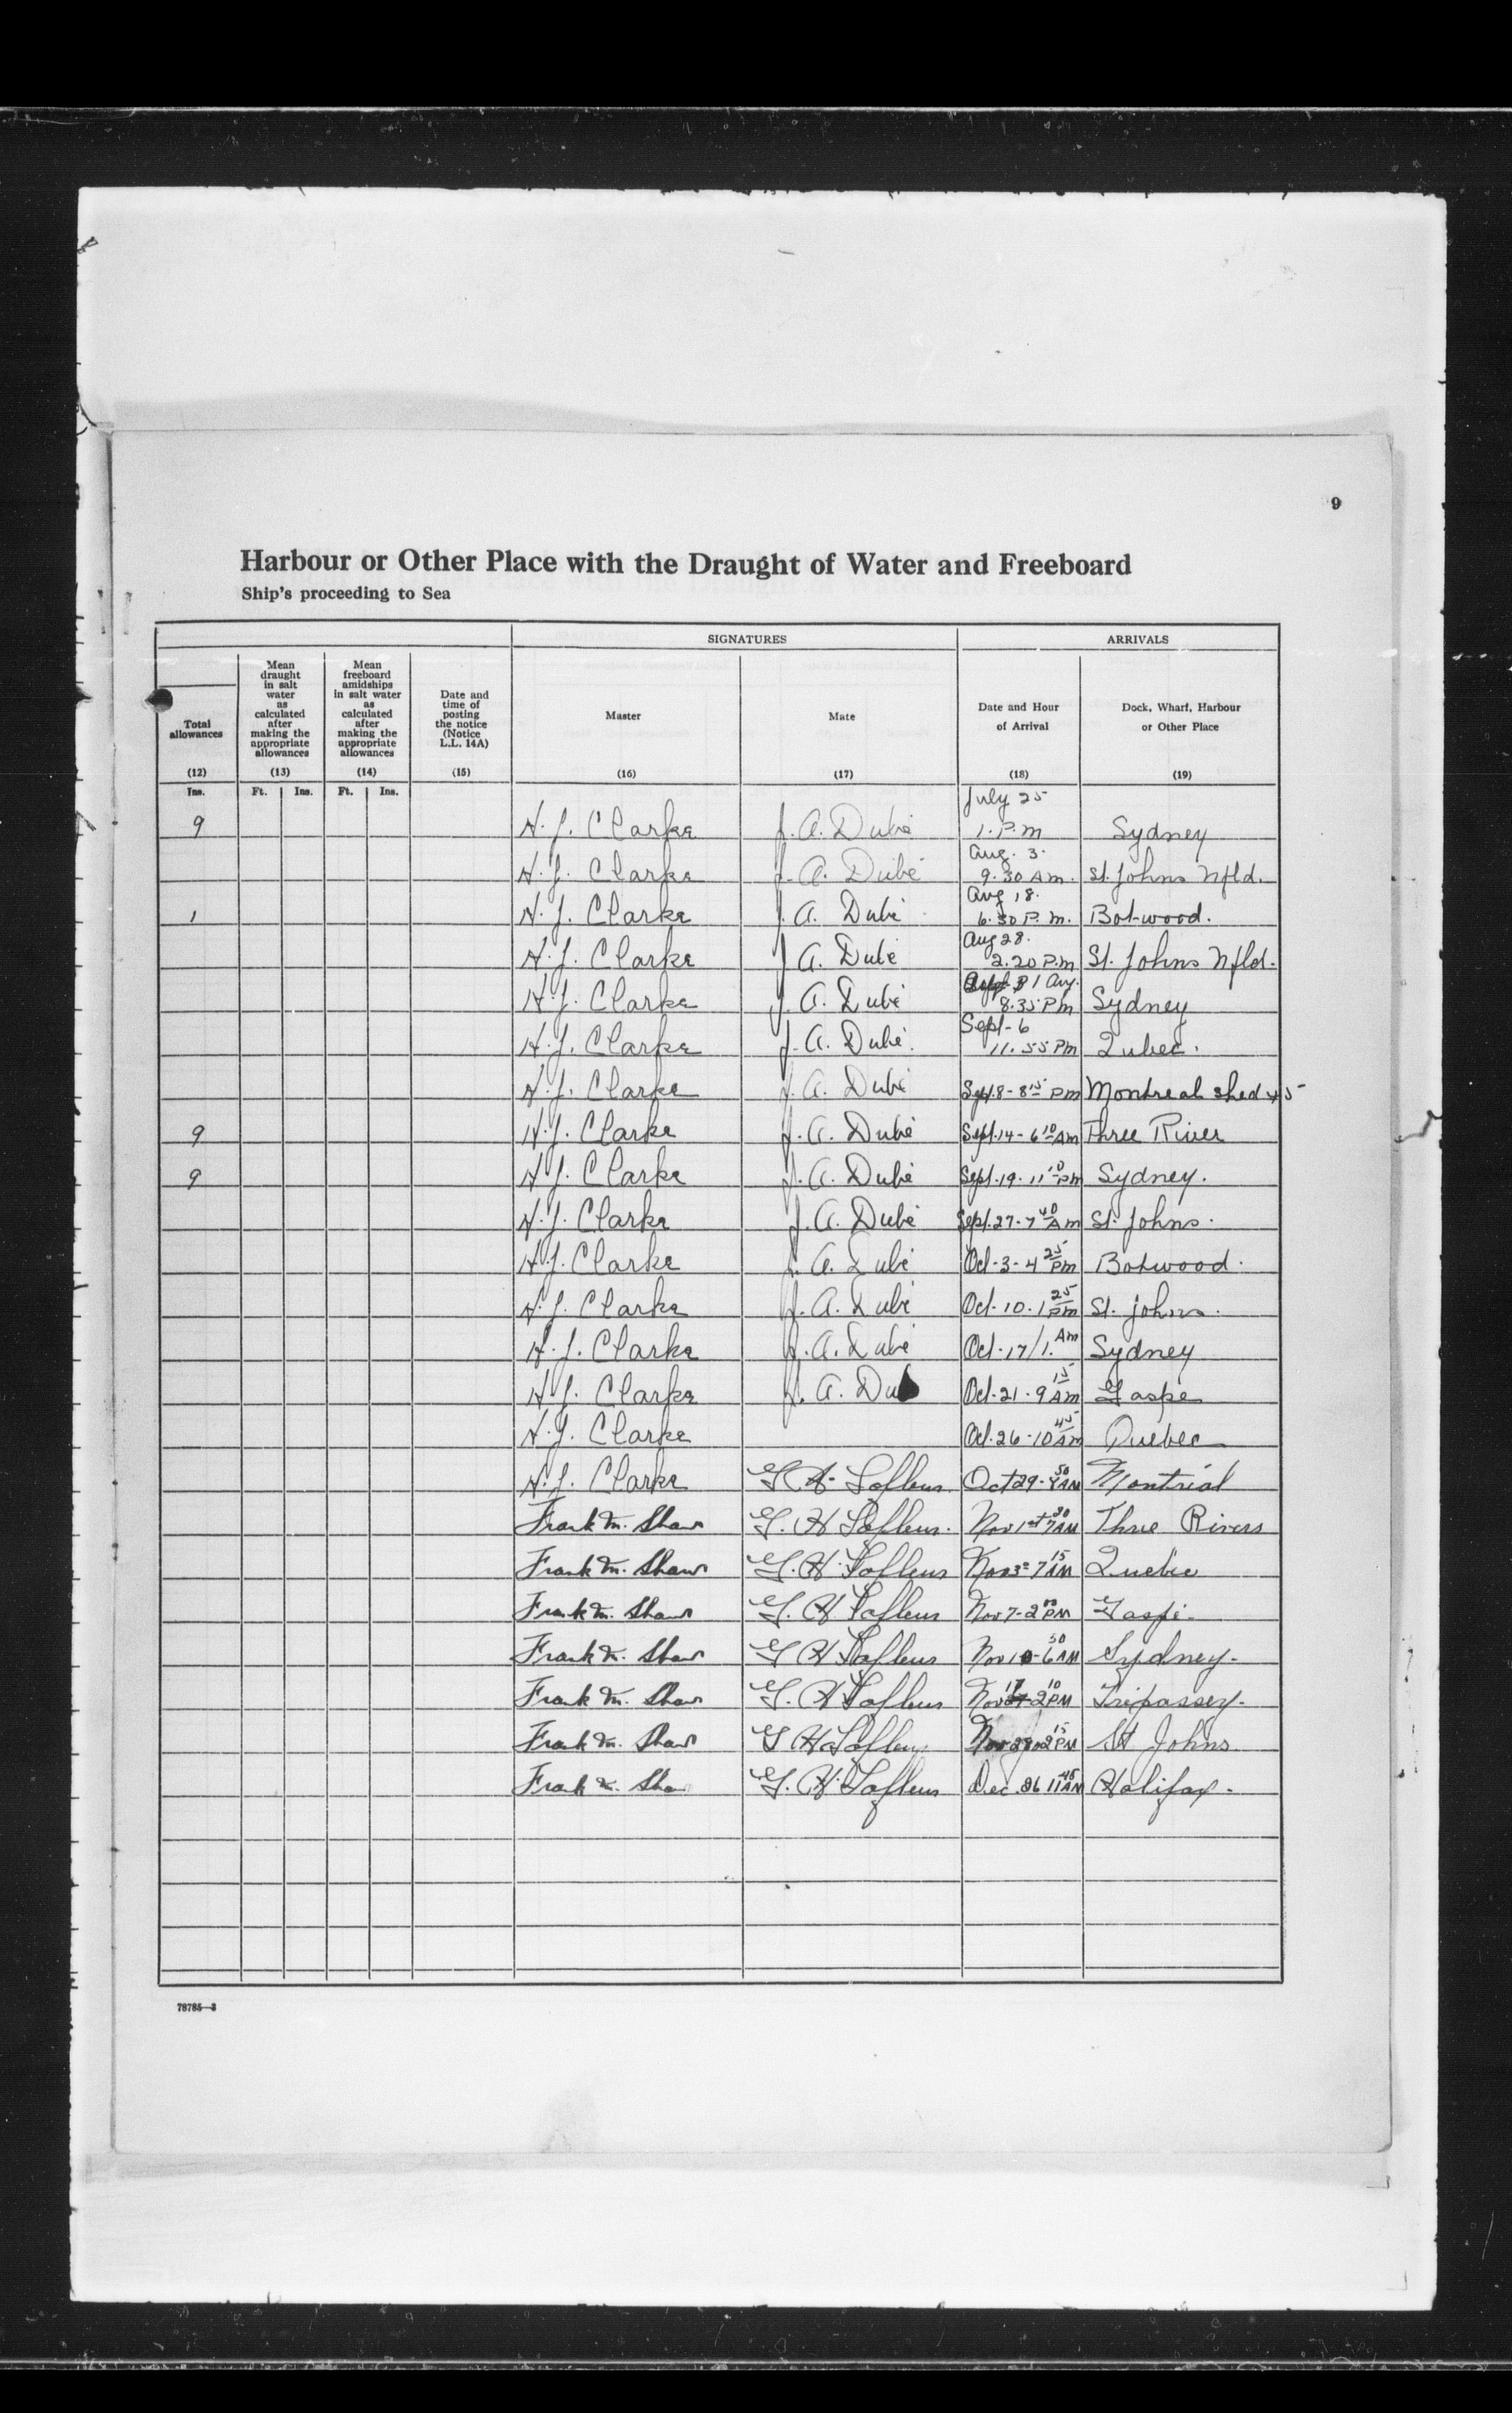 9
Harbour or Other Place with the Draught of Water and Freeboard
Ship's proceeding to Sea
SIGNATURES ARRIVALS
Total allowances
Mean draught in salt water as calculated after making the appropriate allowances
Mean freeboard amidships in salt water as calculated after making the appropriate allowances
Date and time of posting the notice (Notice L.L. 14A)
Master
Mate
Date and Hour of Arrival
Dock, Wharf, Harbour or Other Place
(12) (13) (14) (15) (16) (17) (18) (19)
Ins. Ft. Ins. Ft. Ins.
9 H. J. Clarke J. A. Dubé July 25 1. P.m Sydney
H. J. Clarke J. A. Dubé Aug. 3. 9.30 Am. St. Johns Nfld.
1 H. J. Clarke J. A. Dubé Aug 18. 6.30 P.m. Botwood.
H. J. Clarke J A. Dubé Aug 28. 2.20 P.m St. Johns Nfld.
H. J. Clarke J. A. Dubé 31 Aug. 8.35 Pm Sydney
H. J. Clarke J. A. Dubé. Sept-6 11.55 Pm Qubec.
H. J. Clarke J. A. Dubé Sept.8-8 15 Pm Montreal shed 45
9 H. J. Clarke J. A. Dubé Sept.14-6 10 Am Three River
9 H. J. Clarke J. A. Dubé Sept.19.11 10 Pm Sydney.
H. J. Clarke J. A. Dubé Sept.27-7 40 Am St. Johns.
H. J. Clarke J. A. Dubé Oct-3-4 25 Pm Botwood.
H. J. Clarke J. A. Dubé Oct-10.1 25 Pm St. Johns.
H. J. Clarke J. A. Dubé Oct-17/1. Am Sydney
H. J. Clarke J. A. Dub Oct-21-9 15 Am Gaspe
H. J. Clarke Oct.26-10 45 Am Quebec
H. J. Clarke G H Lafleur Oct 29- 50 AM Montréal
Frank M. Shaw G. H Lafleur. Nov 1st 7 30 AM Three Rivers
Frank M. Shaw G. H. Lafleur Nov 3-7 15 AM Quebec
Frank M. Shaw G. H Lafleur Nov 7-2 PM Gaspé.
Frank M. Shaw G H Lafleur Nov 10-6 50 AM Sydney.
Frank M. Shaw G. H Lafleur Nov 17 2 10 PM Trepassey.
Frank M. Shaw G H Lafleur Nov 2 15 PM St Johns
Frank M. Shaw G. H. Lafleur Dec. 26 11 45 AM Halifax.
78785—3